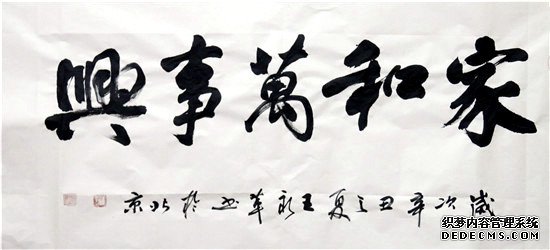 家和萬事興
歲次辛丑之夏王永革书於北京
织梦内容管理系统
DEDECMS.COM